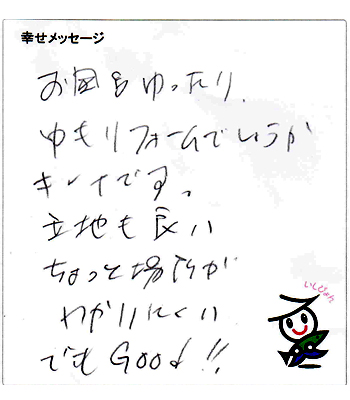 幸せメッセージ
お風呂ゆったり、
ゆもリフォームでしょうか
キレイです。
立地も良い
ちょっと場所が
わかりにくい
でもGood!!
いしじょん